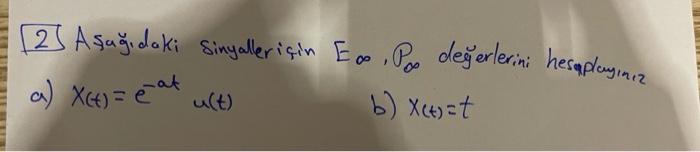 2 Aşağıdaki sinyaller için E∞, P∞ değerlerini hesaplayınız
a) x(t) = e^-at u(t) b) x(t) = t